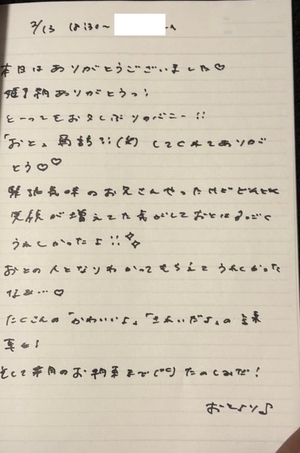 2/13 18:30〜
本日はありがとうございました♡
ありがとうっ!
とーってもお久しぶりのバニー!!
「おと」 してくれてありが
とう♡♡
緊張気味のお兄さんやったけどだんだん
笑顔が増えてた気がしておとはすっごく
うれしかったよ!!✧✧
おとの人となりわかってもらえてうれしかった
なぁ…♡
たくさんの「かわいいよ」「きれいだよ」の言葉
そして来月のお約束まで(°°)たのしみだ!
おとより♪